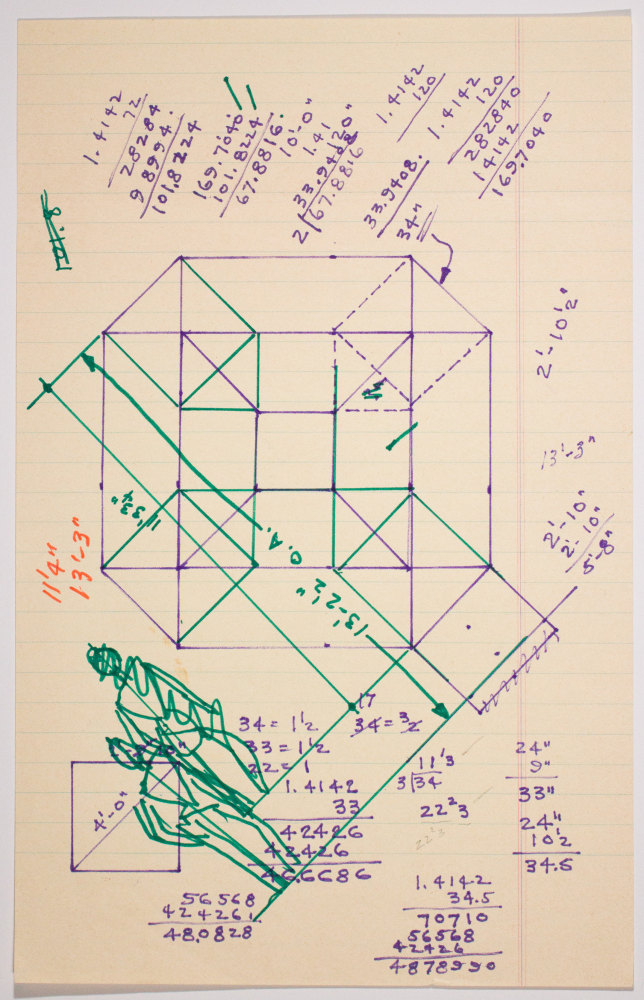 1.4142
72
28284
98994.
101.8224
169.7040
101.8224
67.8816.
10'-0"
1.41
120"
33.9408
2/67.8816
1.4142
120
33.9408.
34"
1.4142
120
282840
14142
169.7040
2'-10½"
13'-3"
2'-10"
2'-10"
5'-8"
11'3¾"
O.A.
13'-2½"
11'4"
13'-3"
4'-0"
34 = 1½
33 = 1½
22 = 1
17
34 = 3/2
1.4142
33
42426
42426
46.6686
11⅓
3/34
22⅔
22⅔
24"
9"
33"
24"
10½
34.5
56568
424261
48.0828
1.4142
34.5
70710
56568
42426
4878990